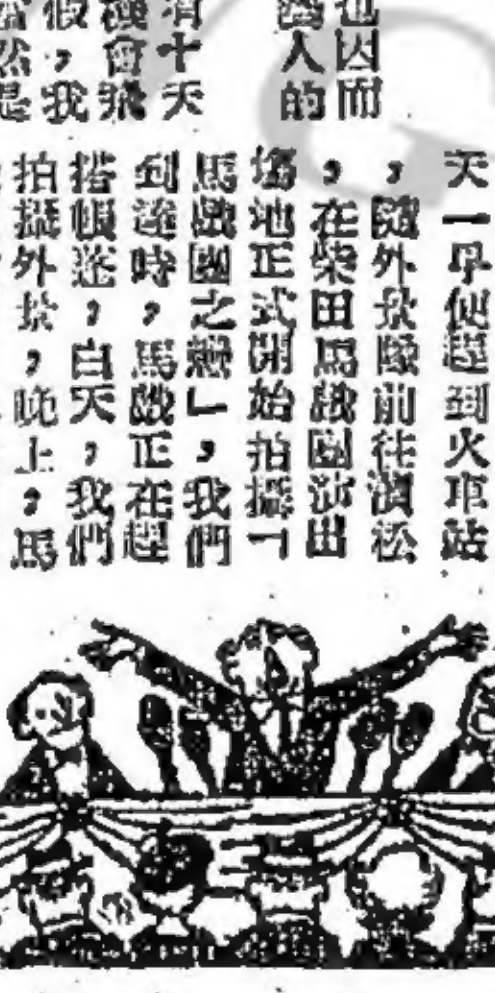 也因而
人的
有十天
會飛
假，我
然是
天一早便趕到火車站
，隨外景隊前往濱松
，在柴田馬戲團演出
場地正式開始拍攝「
馬戲團之戀」，我們
到達時，馬戲正在趕
搭帳篷，白天，我們
拍攝外景，晚上，馬